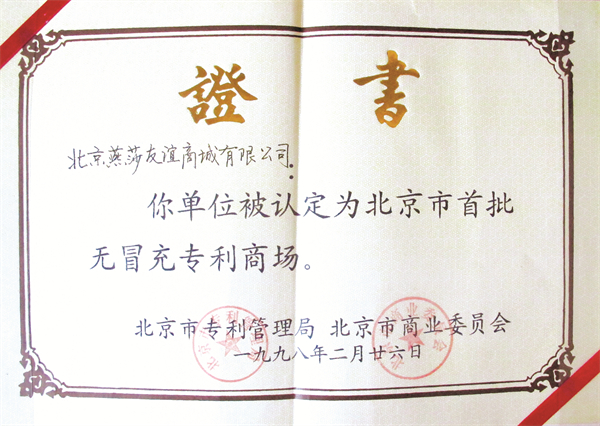 證書
北京燕莎友谊商城有限公司:
你单位被认定为北京市首批
无冒充专利商场。
北京市专利管理局 北京市商业委员会
一九九八年二月廿六日